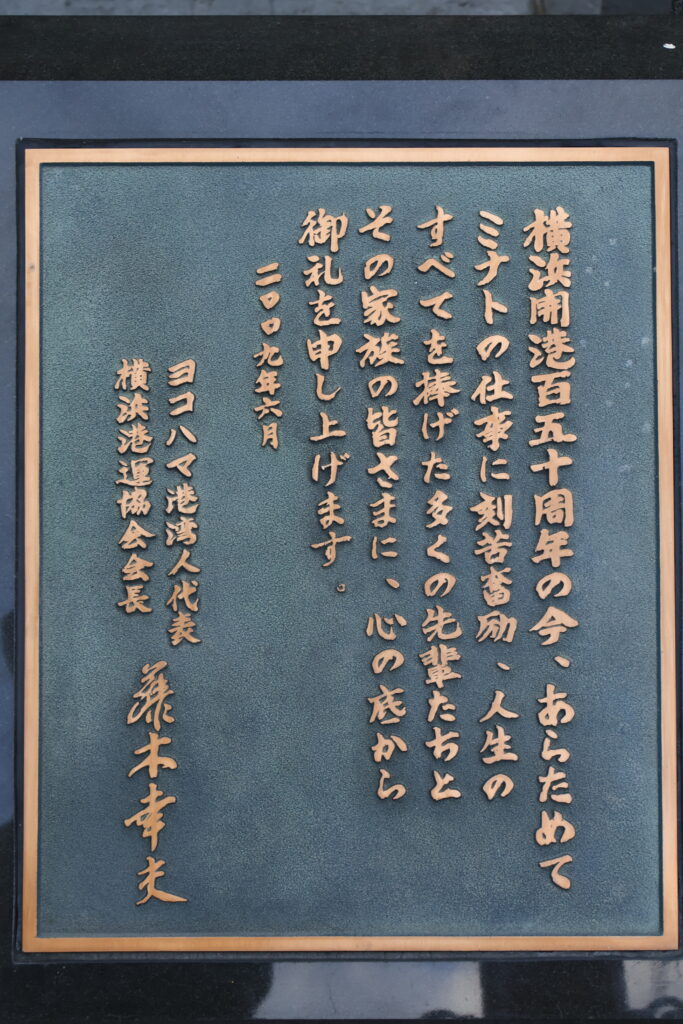 横浜開港百五十周年の今、あらためて
ミナトの仕事に刻苦奮励、人生の
すべてを捧げた多くの先輩たちと
その家族の皆さまに、心の底から
御礼を申し上げます。
二〇〇九年六月
ヨコハマ港湾人代表
横浜港運協会会長 藤木幸夫